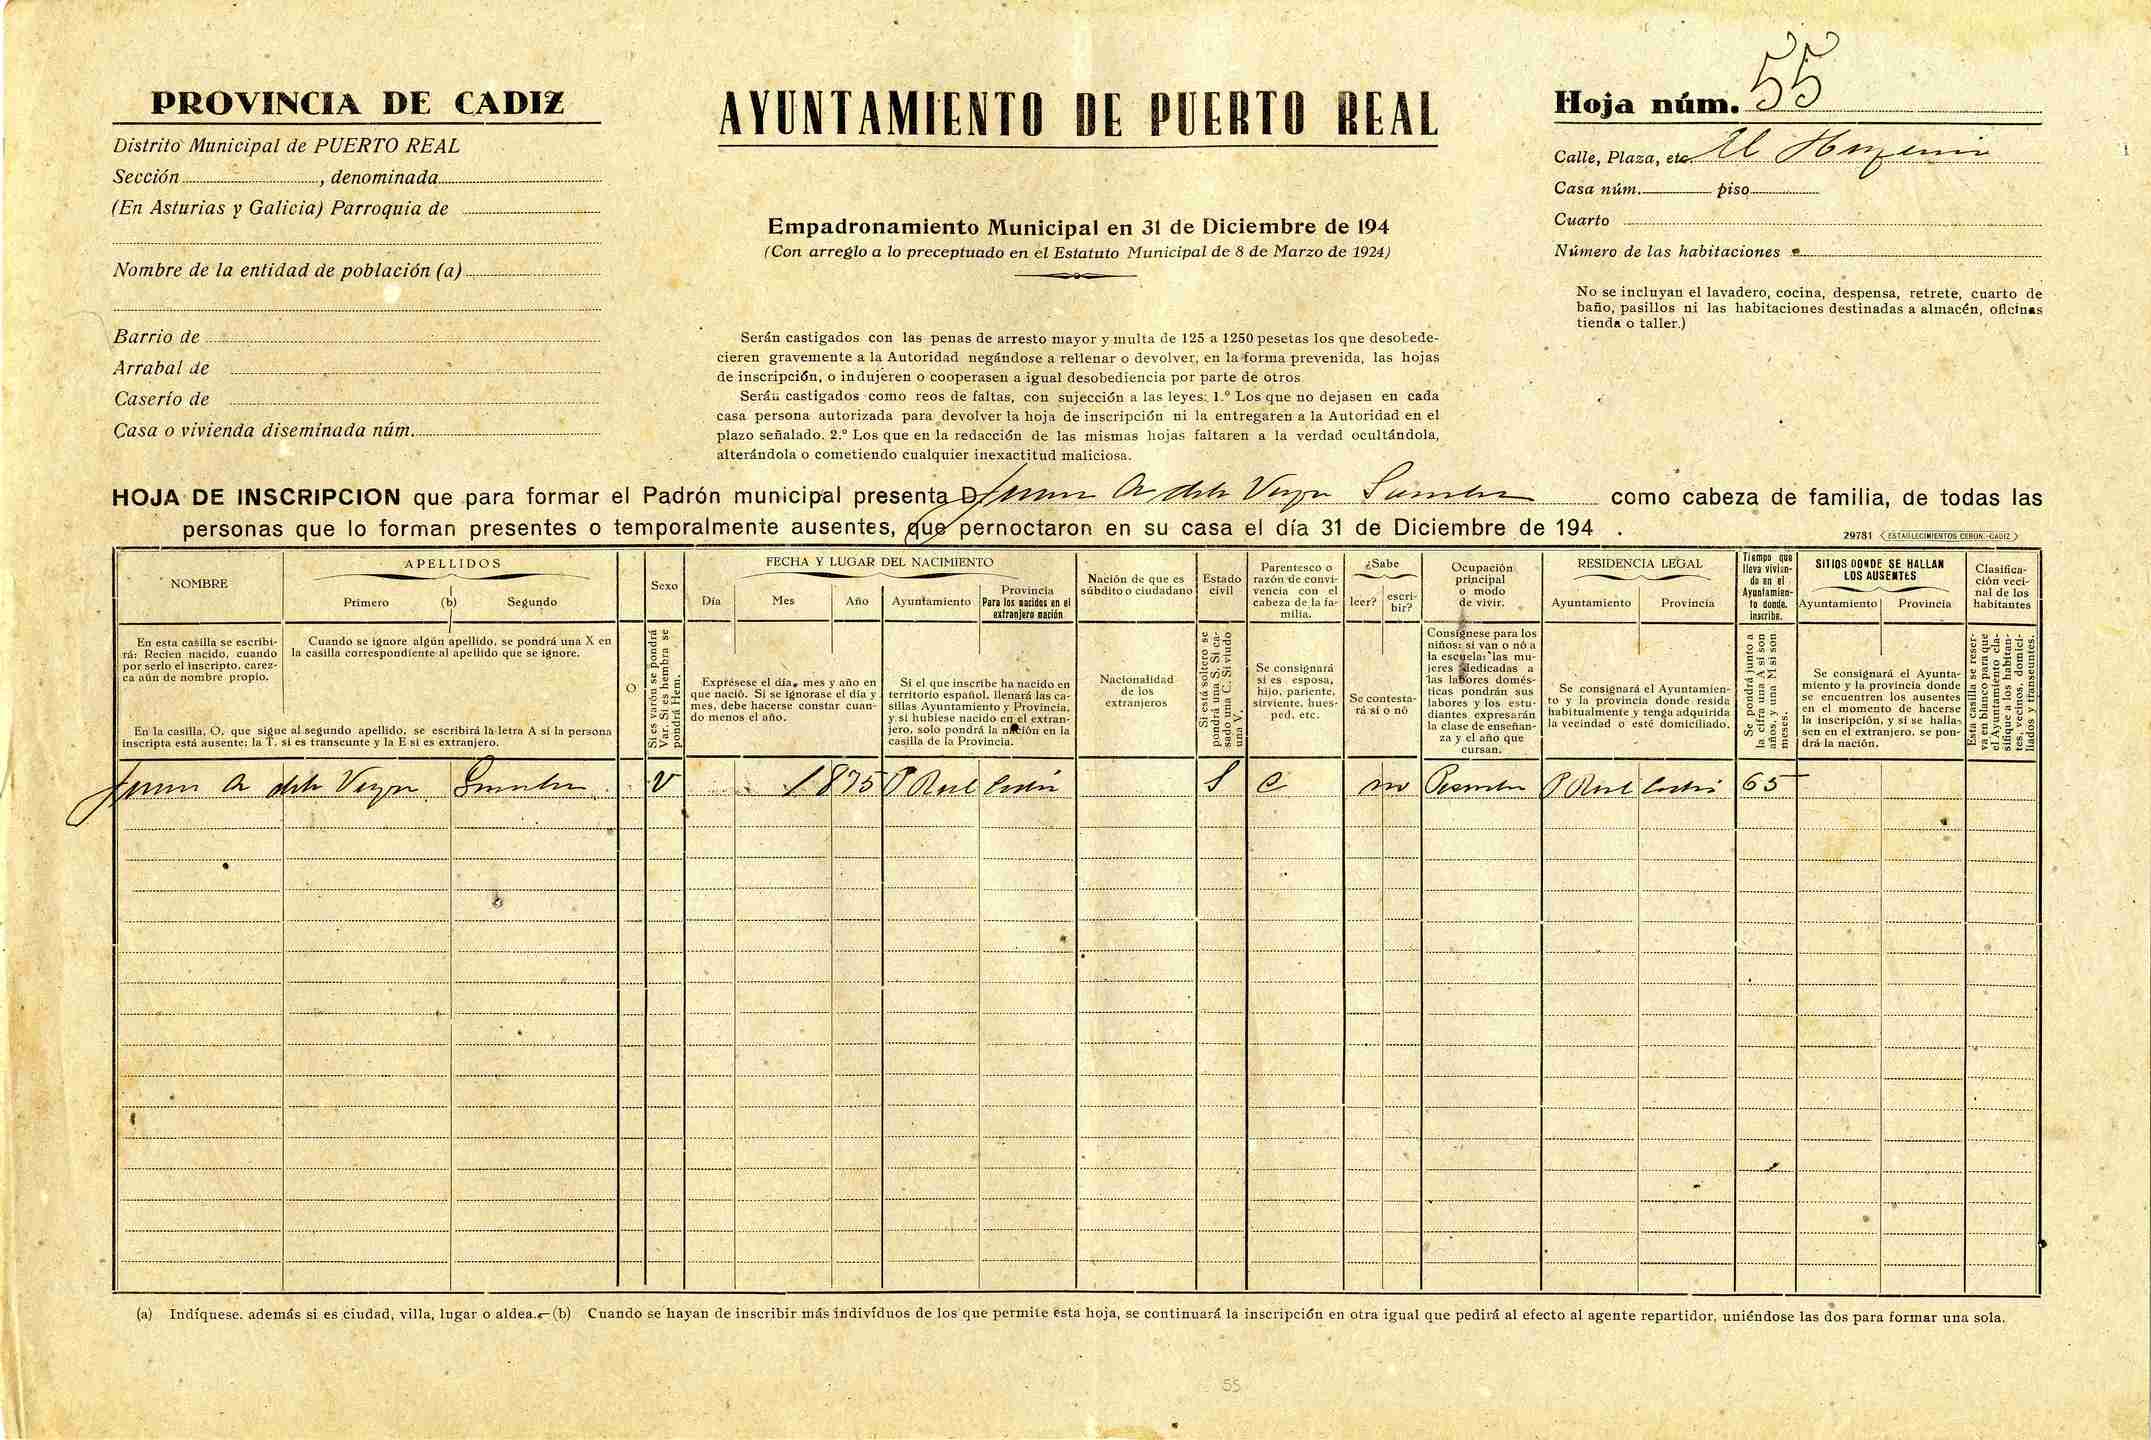 PROVINCIA DE CADIZ
Distrito Municipal de PUERTO REAL
Sección , denominada
(En Asturias y Galicia) Parroquia de
Nombre de la entidad de población (a)
Barrio de
Arrabal de
Caserío de
Casa o vivienda diseminada núm.
AYUNTAMIENTO DE PUERTO REAL
Empadronamiento Municipal en 31 de Diciembre de 194
(Con arreglo a lo preceptuado en el Estatuto Municipal de 8 de Marzo de 1924)
Serán castigados con las penas de arresto mayor y multa de 125 a 1250 pesetas los que desobede-
cieren gravemente a la Autoridad negándose a rellenar o devolver, en la forma prevenida, las hojas
de inscripción, o indujeren o cooperasen a igual desobediencia por parte de otros
Serán castigados como reos de faltas, con sujección a las leyes: 1.º Los que no dejasen en cada
casa persona autorizada para devolver la hoja de inscripción ni la entregaren a la Autoridad en el
plazo señalado. 2.º Los que en la redacción de las mismas hojas faltaren a la verdad ocultándola,
alterándola o cometiendo cualquier inexactitud maliciosa.
Hoja núm. 55
Calle, Plaza, etc. El
Casa núm. piso
Cuarto
Número de las habitaciones
No se incluyan el lavadero, cocina, despensa, retrete, cuarto de
baño, pasillos ni las habitaciones destinadas a almacén, oficinas
tienda o taller.)
HOJA DE INSCRIPCION que para formar el Padrón municipal presenta D. Juan A de la Vega como cabeza de familia, de todas las
personas que lo forman presentes o temporalmente ausentes, que pernoctaron en su casa el día 31 de Diciembre de 194 .
29781 ESTABLECIMIENTOS CERON.-CADIZ
NOMBRE
APELLIDOS
Primero (b) Segundo
O
Sexo
FECHA Y LUGAR DEL NACIMIENTO
Día Mes Año Ayuntamiento
Provincia
Para los nacidos en el
extranjero nación
Nación de que es
súbdito o ciudadano
Estado
civil
Parentesco o
razón de convi-
vencia con el
cabeza de la fa-
milia.
¿Sabe
leer? escri-
bir?
Ocupación
principal
o modo
de vivir.
RESIDENCIA LEGAL
Ayuntamiento Provincia
Tiempo que
lleva vivien-
do en el
Ayuntamien-
to donde.
inscribe.
SITIOS DONDE SE HALLAN
LOS AUSENTES
Ayuntamiento Provincia
Clasifica-
ción veci-
nal de los
habitantes
En esta casilla se escribi-
rá: Recien nacido, cuando
por serlo el inscripto, carez-
ca aún de nombre propio.
Cuando se ignore algún apellido, se pondrá una X en
la casilla correspondiente al apellido que se ignore.
En la casilla, O, que sigue al segundo apellido, se escribirá la letra A si la persona
inscripta está ausente; la T, si es transeunte y la E si es extranjero.
Si es varón se pondrá
Var. Si es hembra se
pondrá Hem.
Expresese el día, mes y año en
que nació. Si se ignorase el día y
mes, debe hacerse constar cuan-
do menos el año.
Si el que inscribe ha nacido en
territorio español, llenará las ca-
sillas Ayuntamiento y Provincia,
y si hubiese nacido en el extran-
jero, solo pondrá la nación en la
casilla de la Provincia.
Nacionalidad
de los
extranjeros
Si está soltero se
pondrá una S. Si ca-
sado una C. Si viudo
una V.
Se consignará
si es esposa,
hijo, pariente,
sirviente, hues-
ped, etc.
Se contesta-
rá si o nó
Consígnese para los
niños: si van o nó a
la escuela: las mu-
jeres dedicadas a
las labores domés-
ticas pondrán sus
labores y los estu-
diantes expresarán
la clase de enseñan-
za y el año que
cursan.
Se consignará el Ayuntamien-
to y la provincia donde resida
habitualmente y tenga adquirida
la vecindad o esté domiciliado.
Se pondrá junto a
la cifra una A si son
años, y una M si son
meses.
Se consignará el Ayunta-
miento y la provincia donde
se encuentren los ausentes
en el momento de hacerse
la inscripción, y si se halla-
sen en el extranjero, se pon-
drá la nación.
Esta casilla se reser-
va en blanco para que
el Ayuntamiento cla-
sifique a los habitan-
tes, vecinos, domici-
liados y transeuntes.
Juan A de la Vega V 1875 P Real Cadiz S C no P Real Cadiz 65
(a) Indíquese, además si es ciudad, villa, lugar o aldea.—(b) Cuando se hayan de inscribir más indivíduos de los que permite esta hoja, se continuará la inscripción en otra igual que pedirá al efecto al agente repartidor, uniéndose las dos para formar una sola.
55